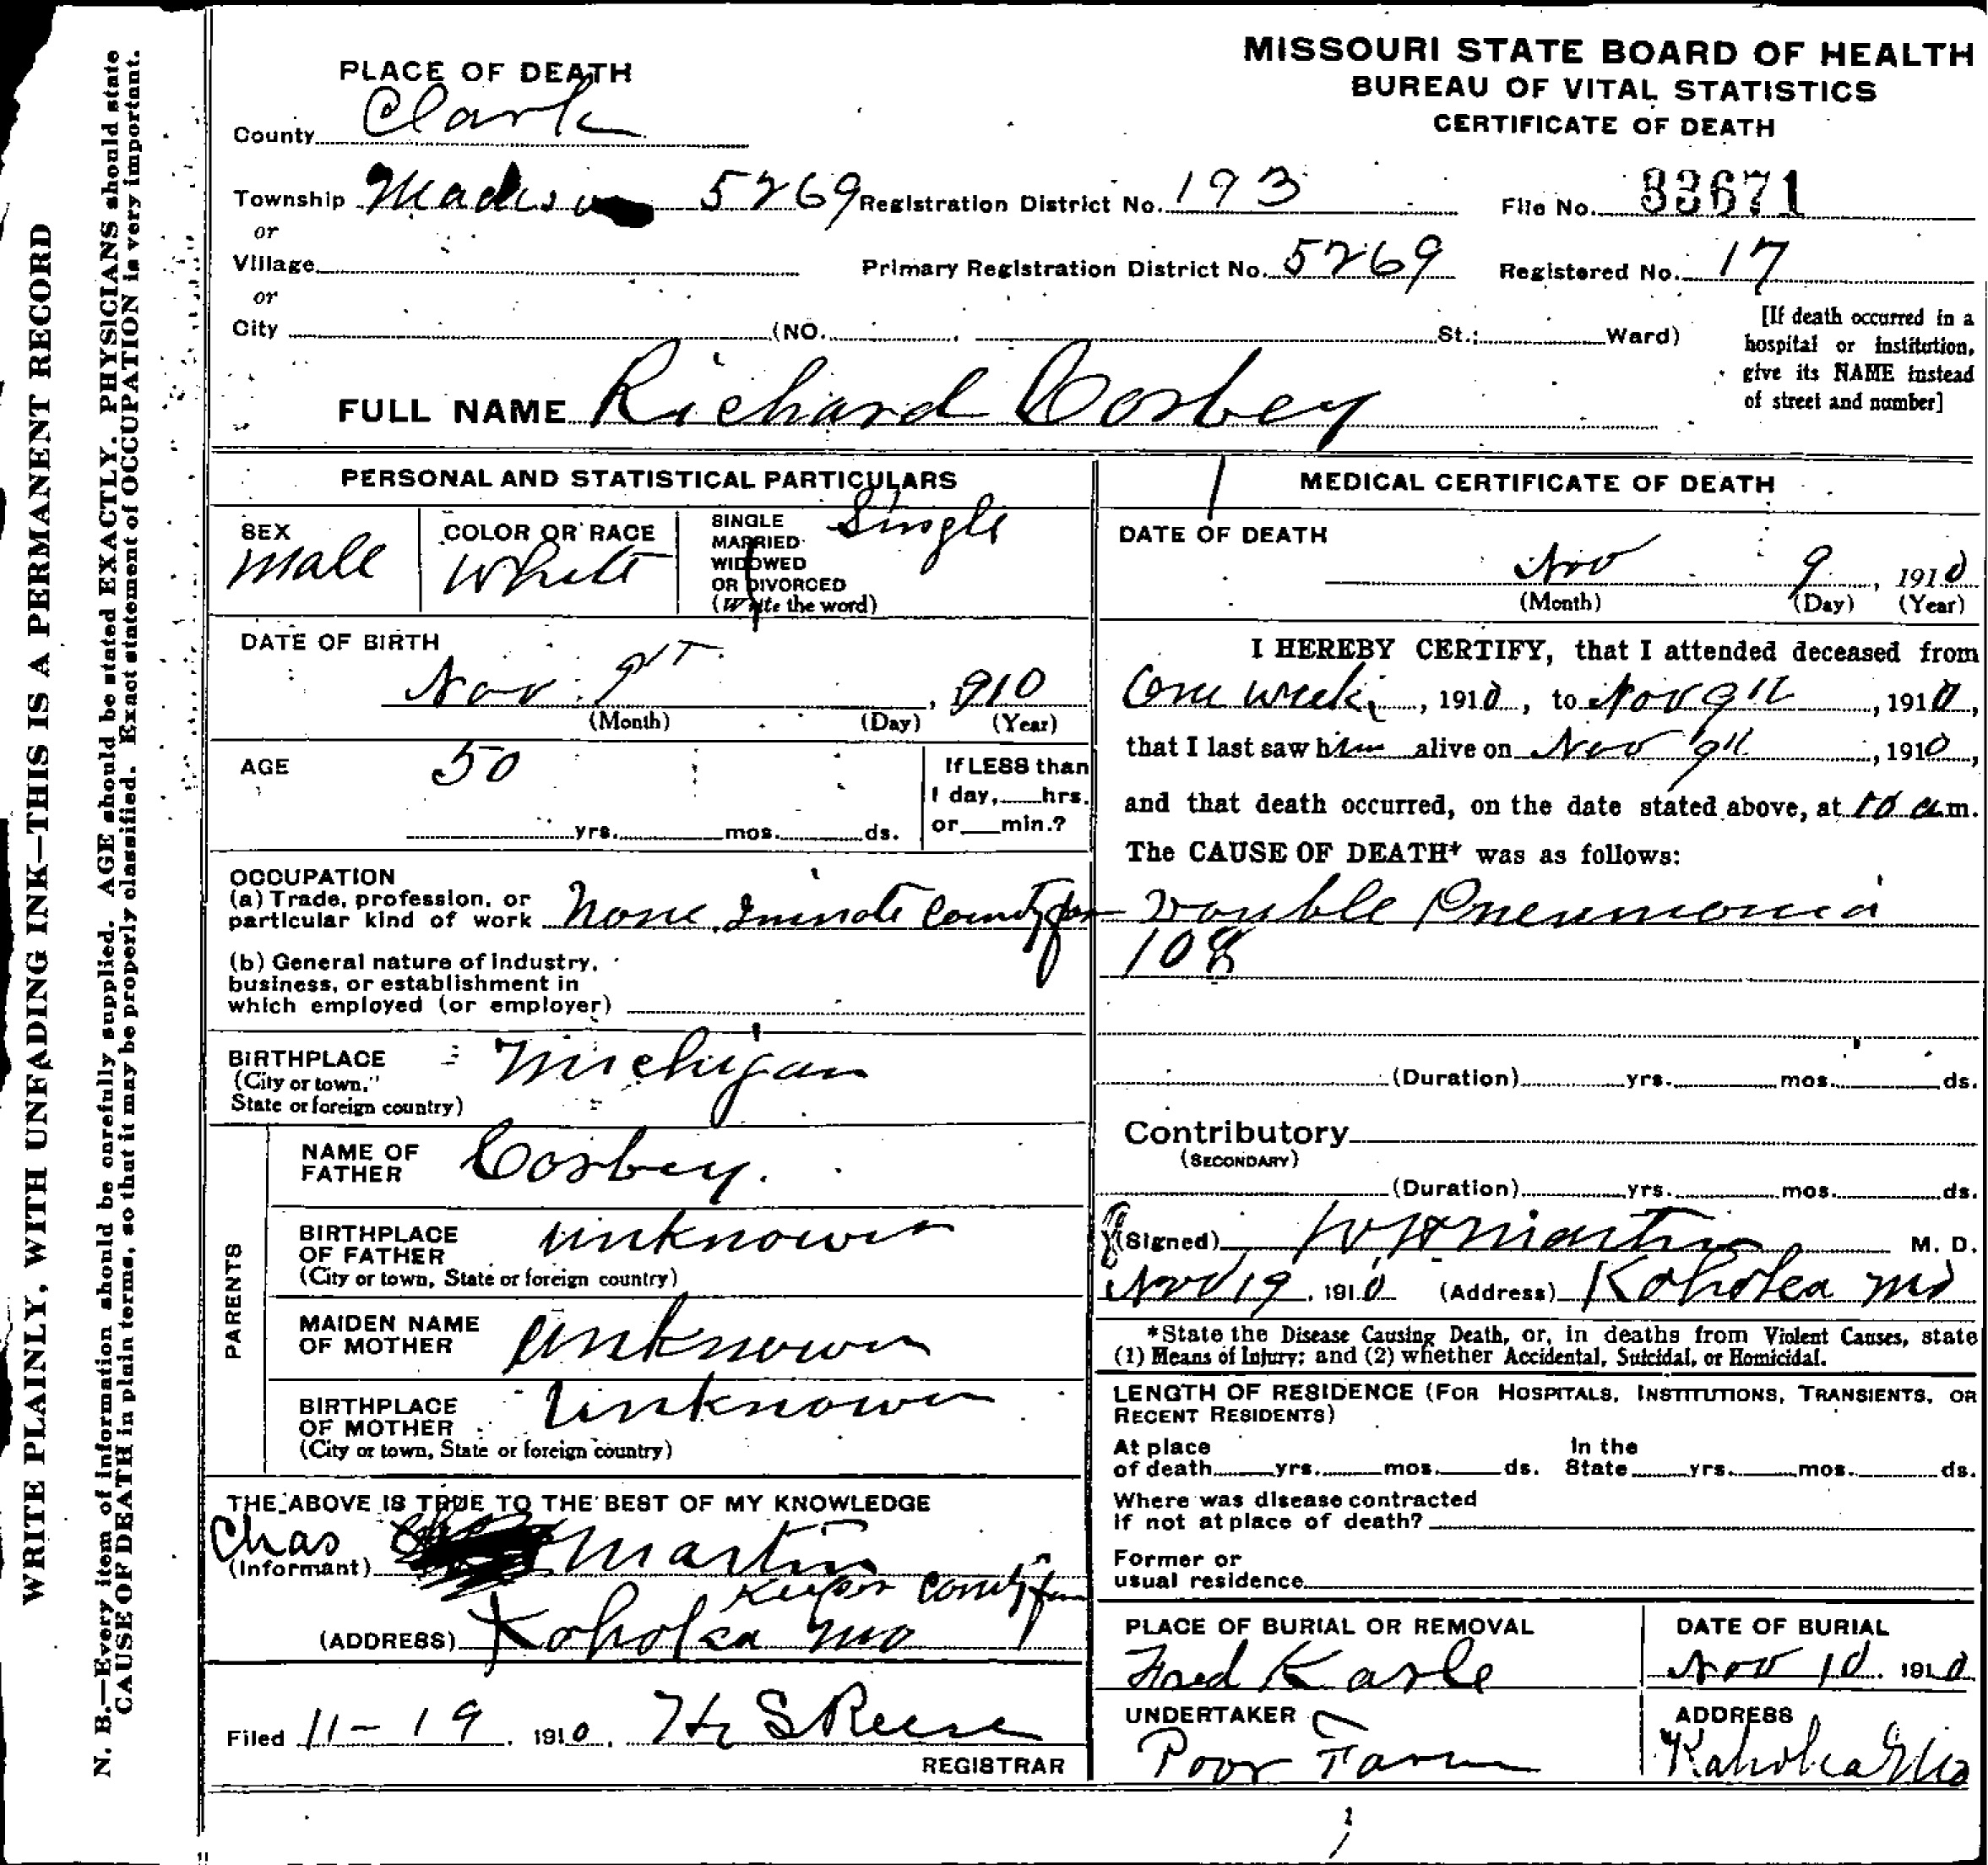 MISSOURI STATE BOARD OF HEALTH
BUREAU OF VITAL STATISTICS
CERTIFICATE OF DEATH
PLACE OF DEATH
County Clark
Township Madison 5269 Registration District No. 193 File No. 33671
or
Village Primary Registration District No. 5269 Registered No. 17
or
City (NO. St.; Ward)
[If death occurred in a
hospital or institution,
give its NAME instead
of street and number]
FULL NAME Richard Cosbey
PERSONAL AND STATISTICAL PARTICULARS
SEX
Male
COLOR OR RACE
White
SINGLE
MARRIED
WIDOWED
OR DIVORCED
(Write the word)
Single
DATE OF BIRTH
Nov. 9, 910
(Month) (Day) (Year)
AGE
50
yrs. mos. ds.
If LESS than
1 day, hrs.
or min.?
OCCUPATION
(a) Trade, profession, or
particular kind of work None. Inmate County farm
(b) General nature of industry,
business, or establishment in
which employed (or employer)
BIRTHPLACE
(City or town,
State or foreign country)
Michigan
PARENTS
NAME OF
FATHER
Cosbey.
BIRTHPLACE
OF FATHER
(City or town, State or foreign country)
unknown
MAIDEN NAME
OF MOTHER
unknown
BIRTHPLACE
OF MOTHER
(City or town, State or foreign country)
Unknown
THE ABOVE IS TRUE TO THE BEST OF MY KNOWLEDGE
(Informant) Chas Martin
Keeper County farm
(ADDRESS) Kahoka Mo
Filed 11-19, 1910, H S Reese
REGISTRAR
MEDICAL CERTIFICATE OF DEATH
DATE OF DEATH
Nov 9, 1910
(Month) (Day) (Year)
I HEREBY CERTIFY, that I attended deceased from
One week, 1910, to Nov 9th, 1910,
that I last saw him alive on Nov 9th, 1910,
and that death occurred, on the date stated above, at 10 a.m.
The CAUSE OF DEATH* was as follows:
Double Pneumonia
108
(Duration) yrs. mos. ds.
Contributory
(SECONDARY)
(Duration) yrs. mos. ds.
(Signed) Martin M. D.
Nov 19, 1910 (Address) Kahoka Mo
*State the Disease Causing Death, or, in deaths from Violent Causes, state
(1) Means of Injury; and (2) whether Accidental, Suicidal, or Homicidal.
LENGTH OF RESIDENCE (FOR HOSPITALS, INSTITUTIONS, TRANSIENTS, OR
RECENT RESIDENTS)
At place
of death yrs. mos. ds. In the
State yrs. mos. ds.
Where was disease contracted
if not at place of death?
Former or
usual residence
PLACE OF BURIAL OR REMOVAL
Fred Karle
DATE OF BURIAL
Nov 10, 1910
UNDERTAKER
Poor Farm
ADDRESS
Kahoka Mo
WRITE PLAINLY, WITH UNFADING INK—THIS IS A PERMANENT RECORD
N. B.—Every item of information should be carefully supplied. AGE should be stated EXACTLY. PHYSICIANS should state
CAUSE OF DEATH in plain terms, so that it may be properly classified. Exact statement of OCCUPATION is very important.